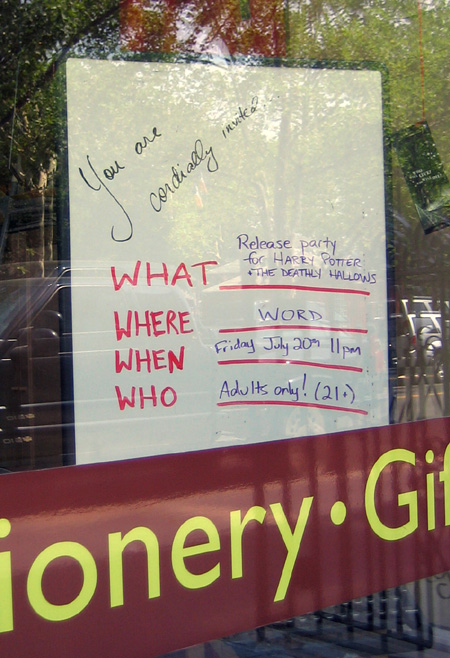 You are
cordially invited
WHAT Release party
for HARRY POTTER
+ THE DEATHLY HALLOWS
WHERE WORD
WHEN Friday July 20th 11pm
WHO Adults only! (21+)
ionery · Gif